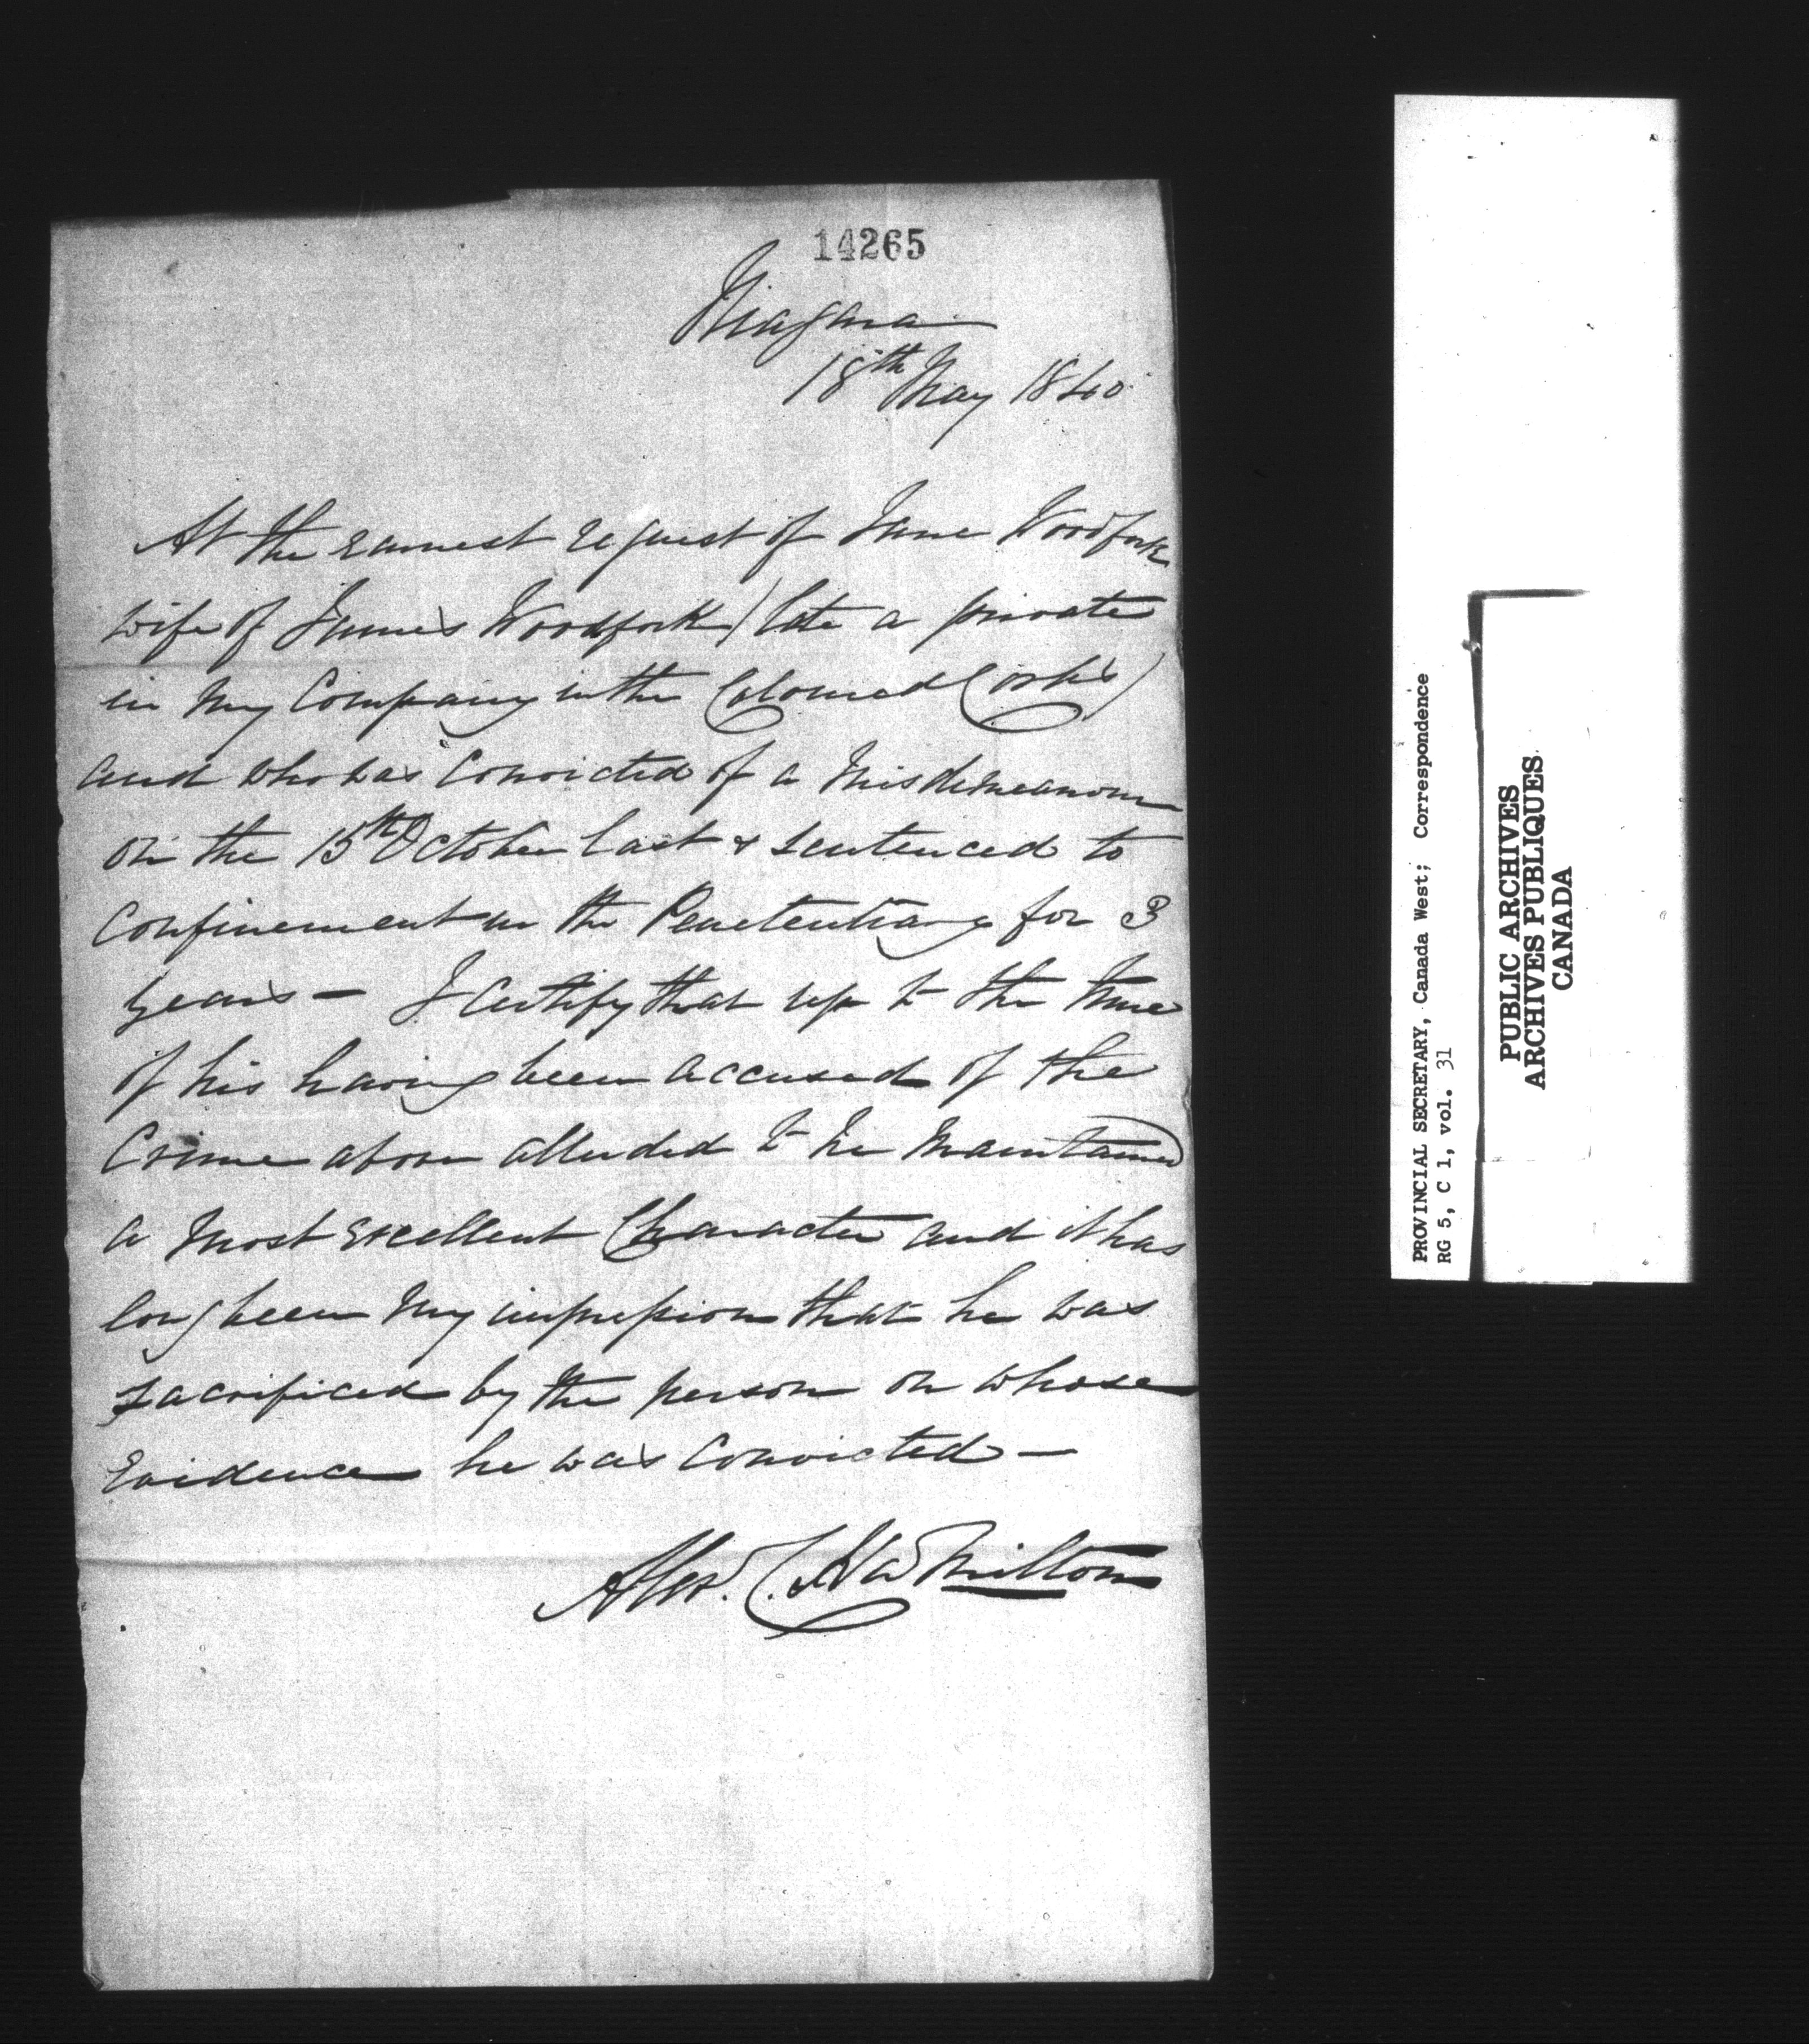 14265
Niagara
18th May 1840
At the earnest request of Jane Woodfork
wife of James Woodfork (late a private
in my Company in the Coloured Corps)
and who was convicted of a Misdemeanour
on the 15th October last & sentenced to
confinement in the Penetentiary for 3
years — I certify that up to the time
of his having been accused of the
Crime above alluded to he maintained
a most excellent Character and it has
long been my impression that he was
sacrificed by the person on whose
Evidence he was convicted —
Alex. C. Hamilton
PROVINCIAL SECRETARY, Canada West; Correspondence
RG 5, C 1, vol. 31
PUBLIC ARCHIVES
ARCHIVES PUBLIQUES
CANADA